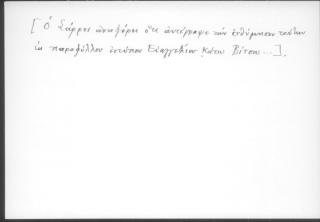 [Ὁ Σάρρος ἀναφέρει ὅτι ἀντέγραψε τὴν ἐνθύμησιν ταύτην
ἐκ παραφύλλου ἐντύπου Εὐαγγελίου Κάτω Βίτσης...].